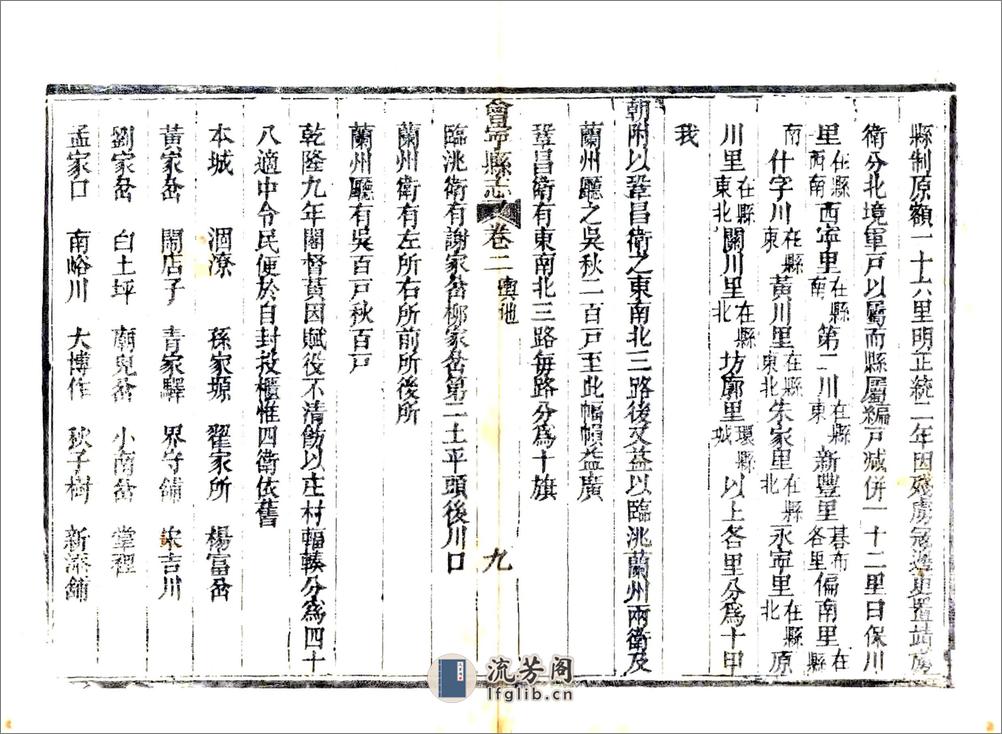 縣制原額一十六里明正統二年因殘虜寇邊更置靖虜
衛分北境軍戶以屬而縣屬編戶减併一十二里曰保川
里在縣西南西寧里在縣南第二川在縣東新豐里碁布各里偏南里在縣
南什字川在縣東黃川里在縣東北朱家里在縣北永寧里在縣北原
川里在縣東北關川里在縣北坊廓里環縣城以上各里分爲十甲
我
朝附以鞏昌衛之東南北三路後又益以臨洮蘭州兩衛及
蘭州廳之吳秋二百戶至此幅幀益廣
鞏昌衛有東南北三路每路分爲十旗
會寧縣志 卷二 輿地 九
臨洮衛有謝家岔柳家岔第二土平頭後川口
蘭州衛有左所右所前所後所
蘭州廳有吳百戶秋百戶
乾隆九年閣督黃因賦役不清飭以庄村輻輳分爲四十
八適中令民便於自封投櫃惟四衛依舊
本城 泗潦 孫家塬 翟家所 楊富岔
黃家岔 鬧店子 青家驛 界守鋪 宋吉川
劉家岔 白土坪 廟兒岔 小南岔 掌裡
孟家口 南峪川 大博作 秋子樹 新添鋪
流芳阁
lfglib.cn